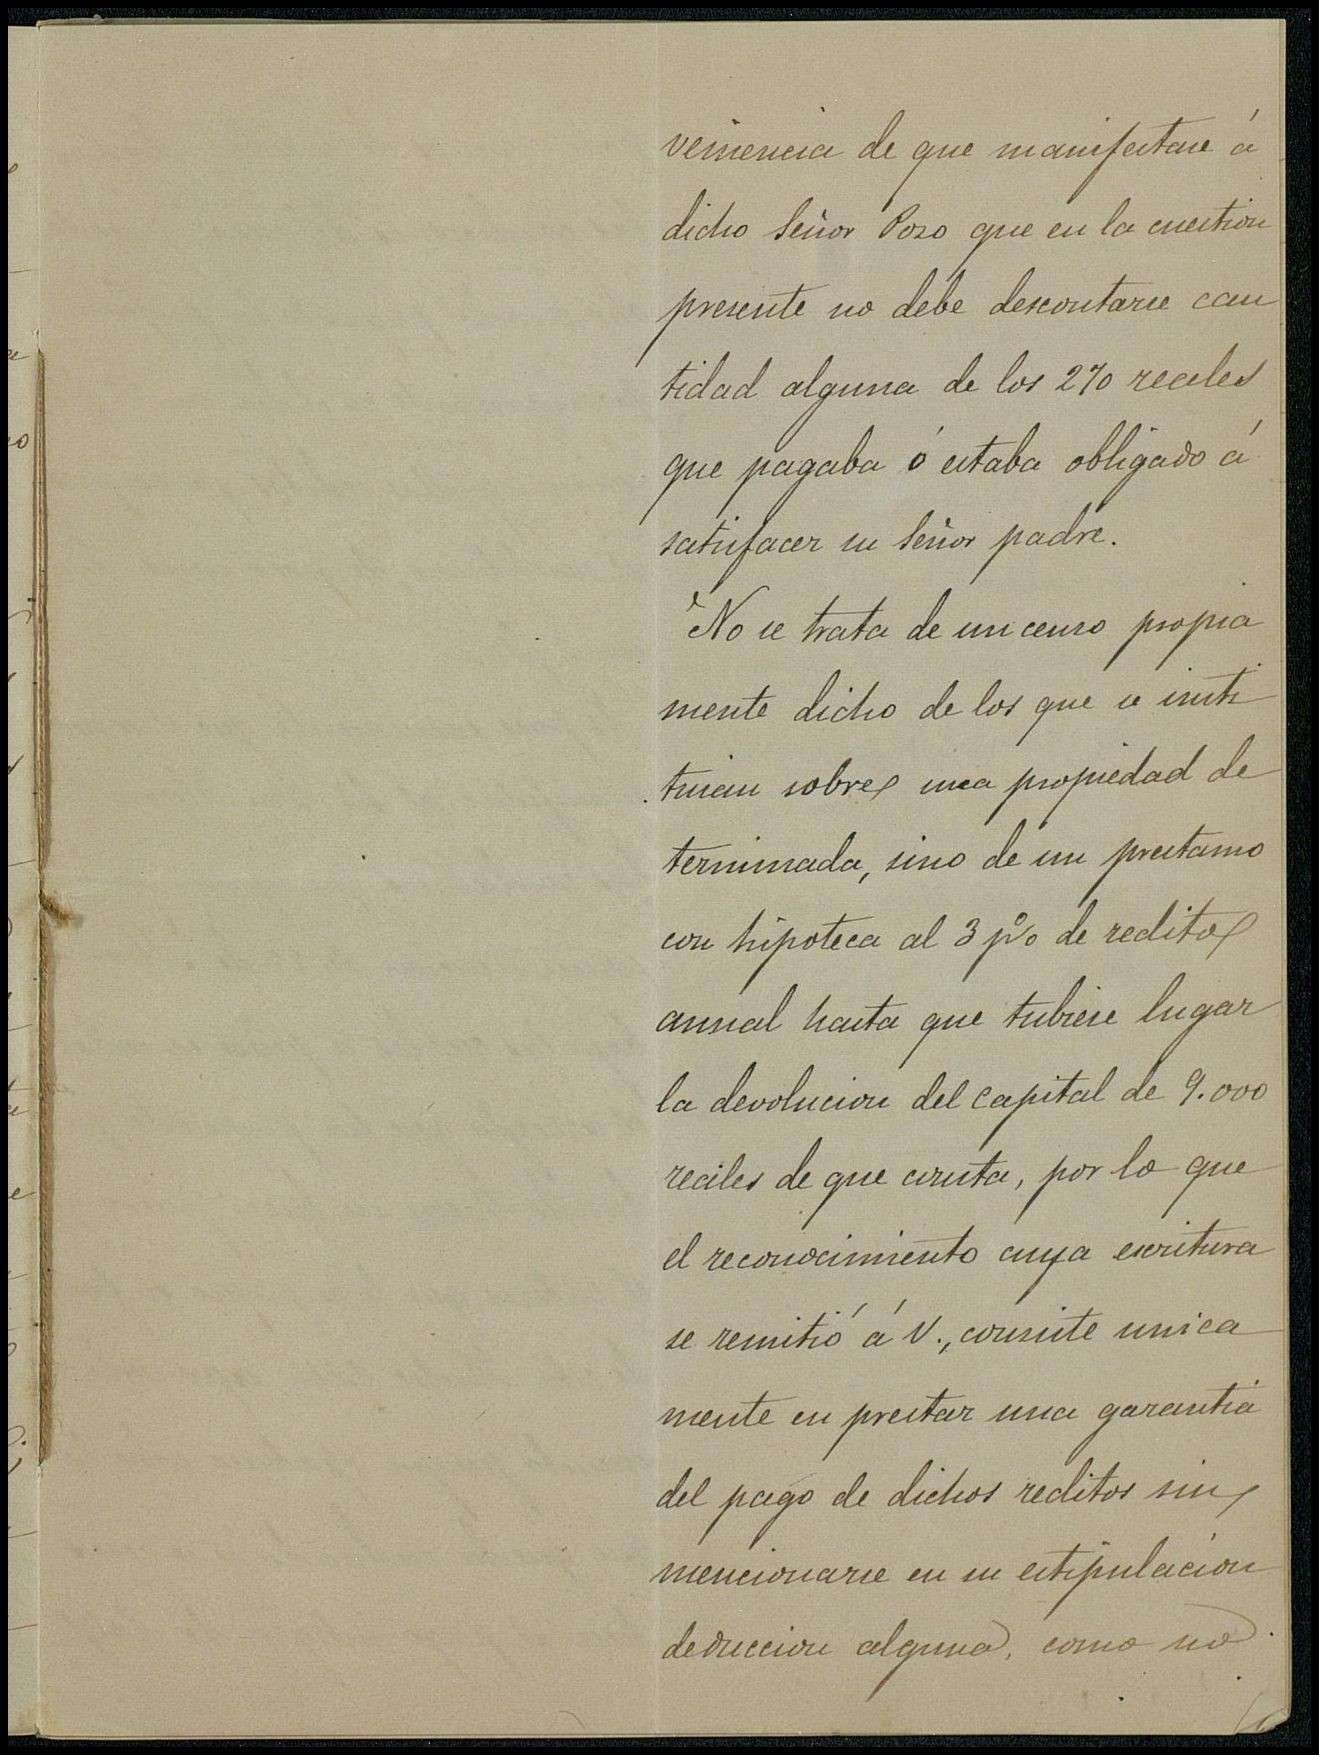 veniencia de que manifestase á
dicho Señor Pozo que en la cuestion
presente no debe descontarse can
tidad alguna de los 270 reales
que pagaba ó estaba obligado á
satisfacer su Señor padre.
No se trata de un censo propia
mente dicho de los que se insti
tuian sobre una propiedad de
terminada, sino de un prestamo
con hipoteca al 3 p% de redito
annal hasta que tubiese lugar
la devolucion del capital de 9.000
reales de que consta, por lo que
el reconocimiento cuya escritura
se remitió á V., consiste unica
mente en prestar una garantia
del pago de dichos reditos sin
mencionarse en su estipulacion
deduccion alguna, como no